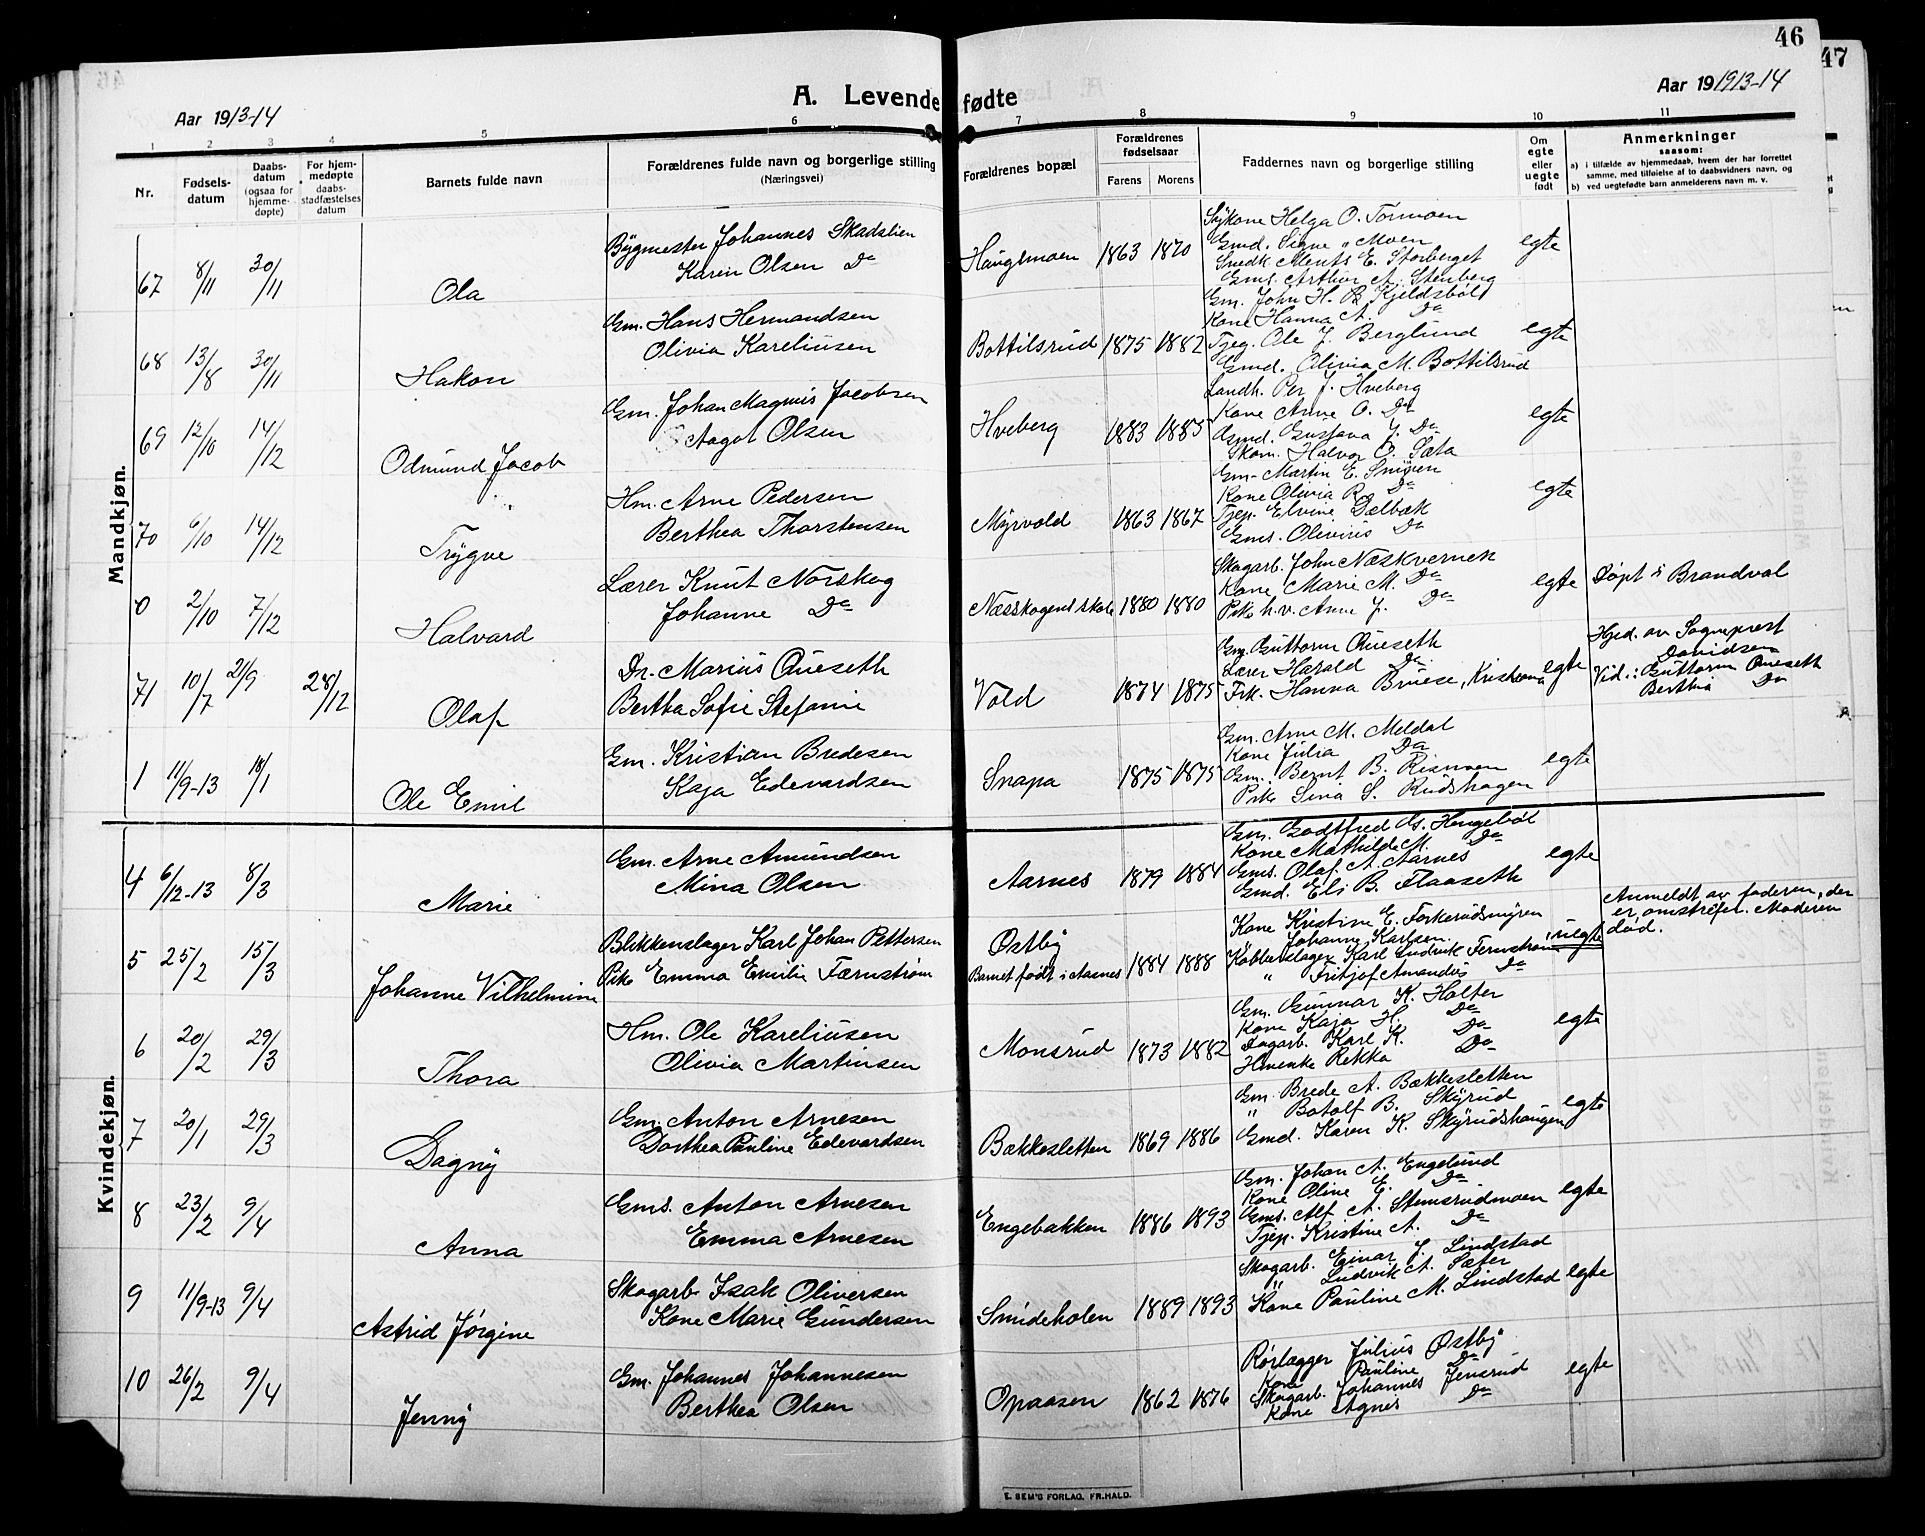 46
47
A. Levende fødte
Aar 1913-14
Aar 191913-14
1 2 3 4 5 6 7 8 9 10 11
Nr.
Fødsels-
datum
Daabs-
datum
(ogsaa for
hjemme-
døpte)
For hjem-
medøpte
daabs-
stadfæstelses
datum
Barnets fulde navn
Forældrenes fulde navn og borgerlige stilling
(Næringsvei)
Forældrenes bopæl
Forældrenes
fødselsaar
Farens Morens
Faddernes navn og borgerlige stilling
Om
egte
eller
uegte
født
Anmerkninger
saasom:
a) i tilfælde av hjemmedaab, hvem der har forrettet
samme, med tilføielse af to daabsvidners navn, og
b) ved uegtefødte barn anmelderens navn m. v.
Mandkjøn.
67 8/11 30/11 Ola
Bygmester Johannes Skadslien
Karin Olsen Do
Haugsmoen 1863 1870
Sykone Helga O. Tormoen
Gmd. Signe „ Moen
Snedk Ments E. Storberget
Gms. Arthur A. Stenberg
egte
68 13/8 30/11 Hakon
Gm. Hans Hermandsen
Olivia Kareliusen
Bottilsrud 1875 1882
Gm. John H. B. Kjeldsbøl
Kone Hanna A. Do
Tjeg. Ole J. Berglund
Gmd. Olivia M. Bottilsrud
egte
69 12/10 14/12 Odmund Jacob
Gm. Johan Magnus Jacobsen
Aagot Olsen
Hveberg 1883 1885
Landh. Per J. Hveberg
Kone Anne O. Do
Gmd. Gustava J. Do
Skom. Halvor O. Sæta
egte
70 6/10 14/12 Trygve
Hm. Arne Pedersen
Berthea Thorstensen
Myrvold 1863 1867
Gm. Martin E. Snipen
Kone Olivia R. Do
Tjep. Elvine Dælbæk
Gms. Olivius Do
egte
0 2/10 7/12 Halvard
Lærer Knut Norskog
Johanne Do
Næsskogens skole 1880 1880
Skogarb. John Næskvernen
Kone Marie M. Do
Pike h.v. Anne J. Do
egte
Døpt i Brandval
71 10/7 21/9 28/12 Olaf
Dr. Marius Queseth
Bertha Sofie Stefanie
Vold 1874 1875
Gm. Guttorm Queseth
Lærer Harald Do
Frk. Hanna Bruese, Kristiania
egte
Hjed. av Sogneprest
Davidsen
Vid.: Guttorm Queseth
Berthia Do
1 11/9-13 18/1 Ole Emil
Gm. Kristian Bredesen
Kaja Edevardsen
Snapa 1875 1875
Gm. Arne M. Meldal
Kone Julia Do
Gm. Bernt B. Rismoen
Pike Sina S. Rudshagen
egte
Kvindekjøn.
4 6/12-13 8/3 Marie
Gm. Arne Amundsen
Mina Olsen
Aarnes 1879 1884
Gm. Godtfred As. Hengebøl
Kone Mathilde M. Do
Gms. Olaf A. Aarnes
Gmd. Eli B. Flaaseth
egte
5 25/2 15/3 Johanne Vilhelmine
Blikkenslager Karl Johan Pettersen
Pike Emma Emilie Færnstrøm
Østby
Barnet født i Aarnes 1884 1888
Kone Kristine E. Forkerudsmyren
Johanne Karlsen
Kobberslager Karl Ludvik Fernstrøm
„ Fritjof Amandus Do
uegte
Anmeldt av faderen, der
er omstreifer. Moderen
død.
6 20/2 29/3 Thora
Hm. Ole Kareliusen
Olivia Martinsen
Monsrud 1873 1882
Gm. Gunnar K. Holter
Kone Kaja H. Do
Dagarb. Karl K. Do
Hvenke Rekka Do
egte
7 20/1 29/3 Dagny
Gm. Anton Arnesen
Dorthea Pauline Edevardsen
Bækkesletten 1869 1886
Gm. Brede A. Bækkesletten
„ Botolf B. Skyrud
Gmd. Karen K. Skyrudshaugen
egte
8 23/2 9/4 Anna
Gms. Anton Arnesen
Emma Arnesen
Engebakken 1886 1893
Gm. Johan A. Engelund
Kone Oline E. Do
Gms. Alf A. Stemsrudmoen
Tjep. Kristine A. Do
egte
9 11/9-13 9/4 Astrid Jørgine
Skogarb. Isak Oliversen
Kone Marie Gundersen
Smideholen 1889 1893
Skogarb. Einar J. Lindstad
„ Ludvik A. Sæter
Kone Pauline M. Lindstad
egte
10 26/2 9/4 Jenny
Gm. Johannes Johannesen
Berthea Olsen
Opaasen 1862 1876
Rørlægger Julius Østby
Kone Pauline Do
Skogarb. Johannes Jensrud
Kone Agnes Do
egte
E. SEM'S FORLAG, FR.HALD.